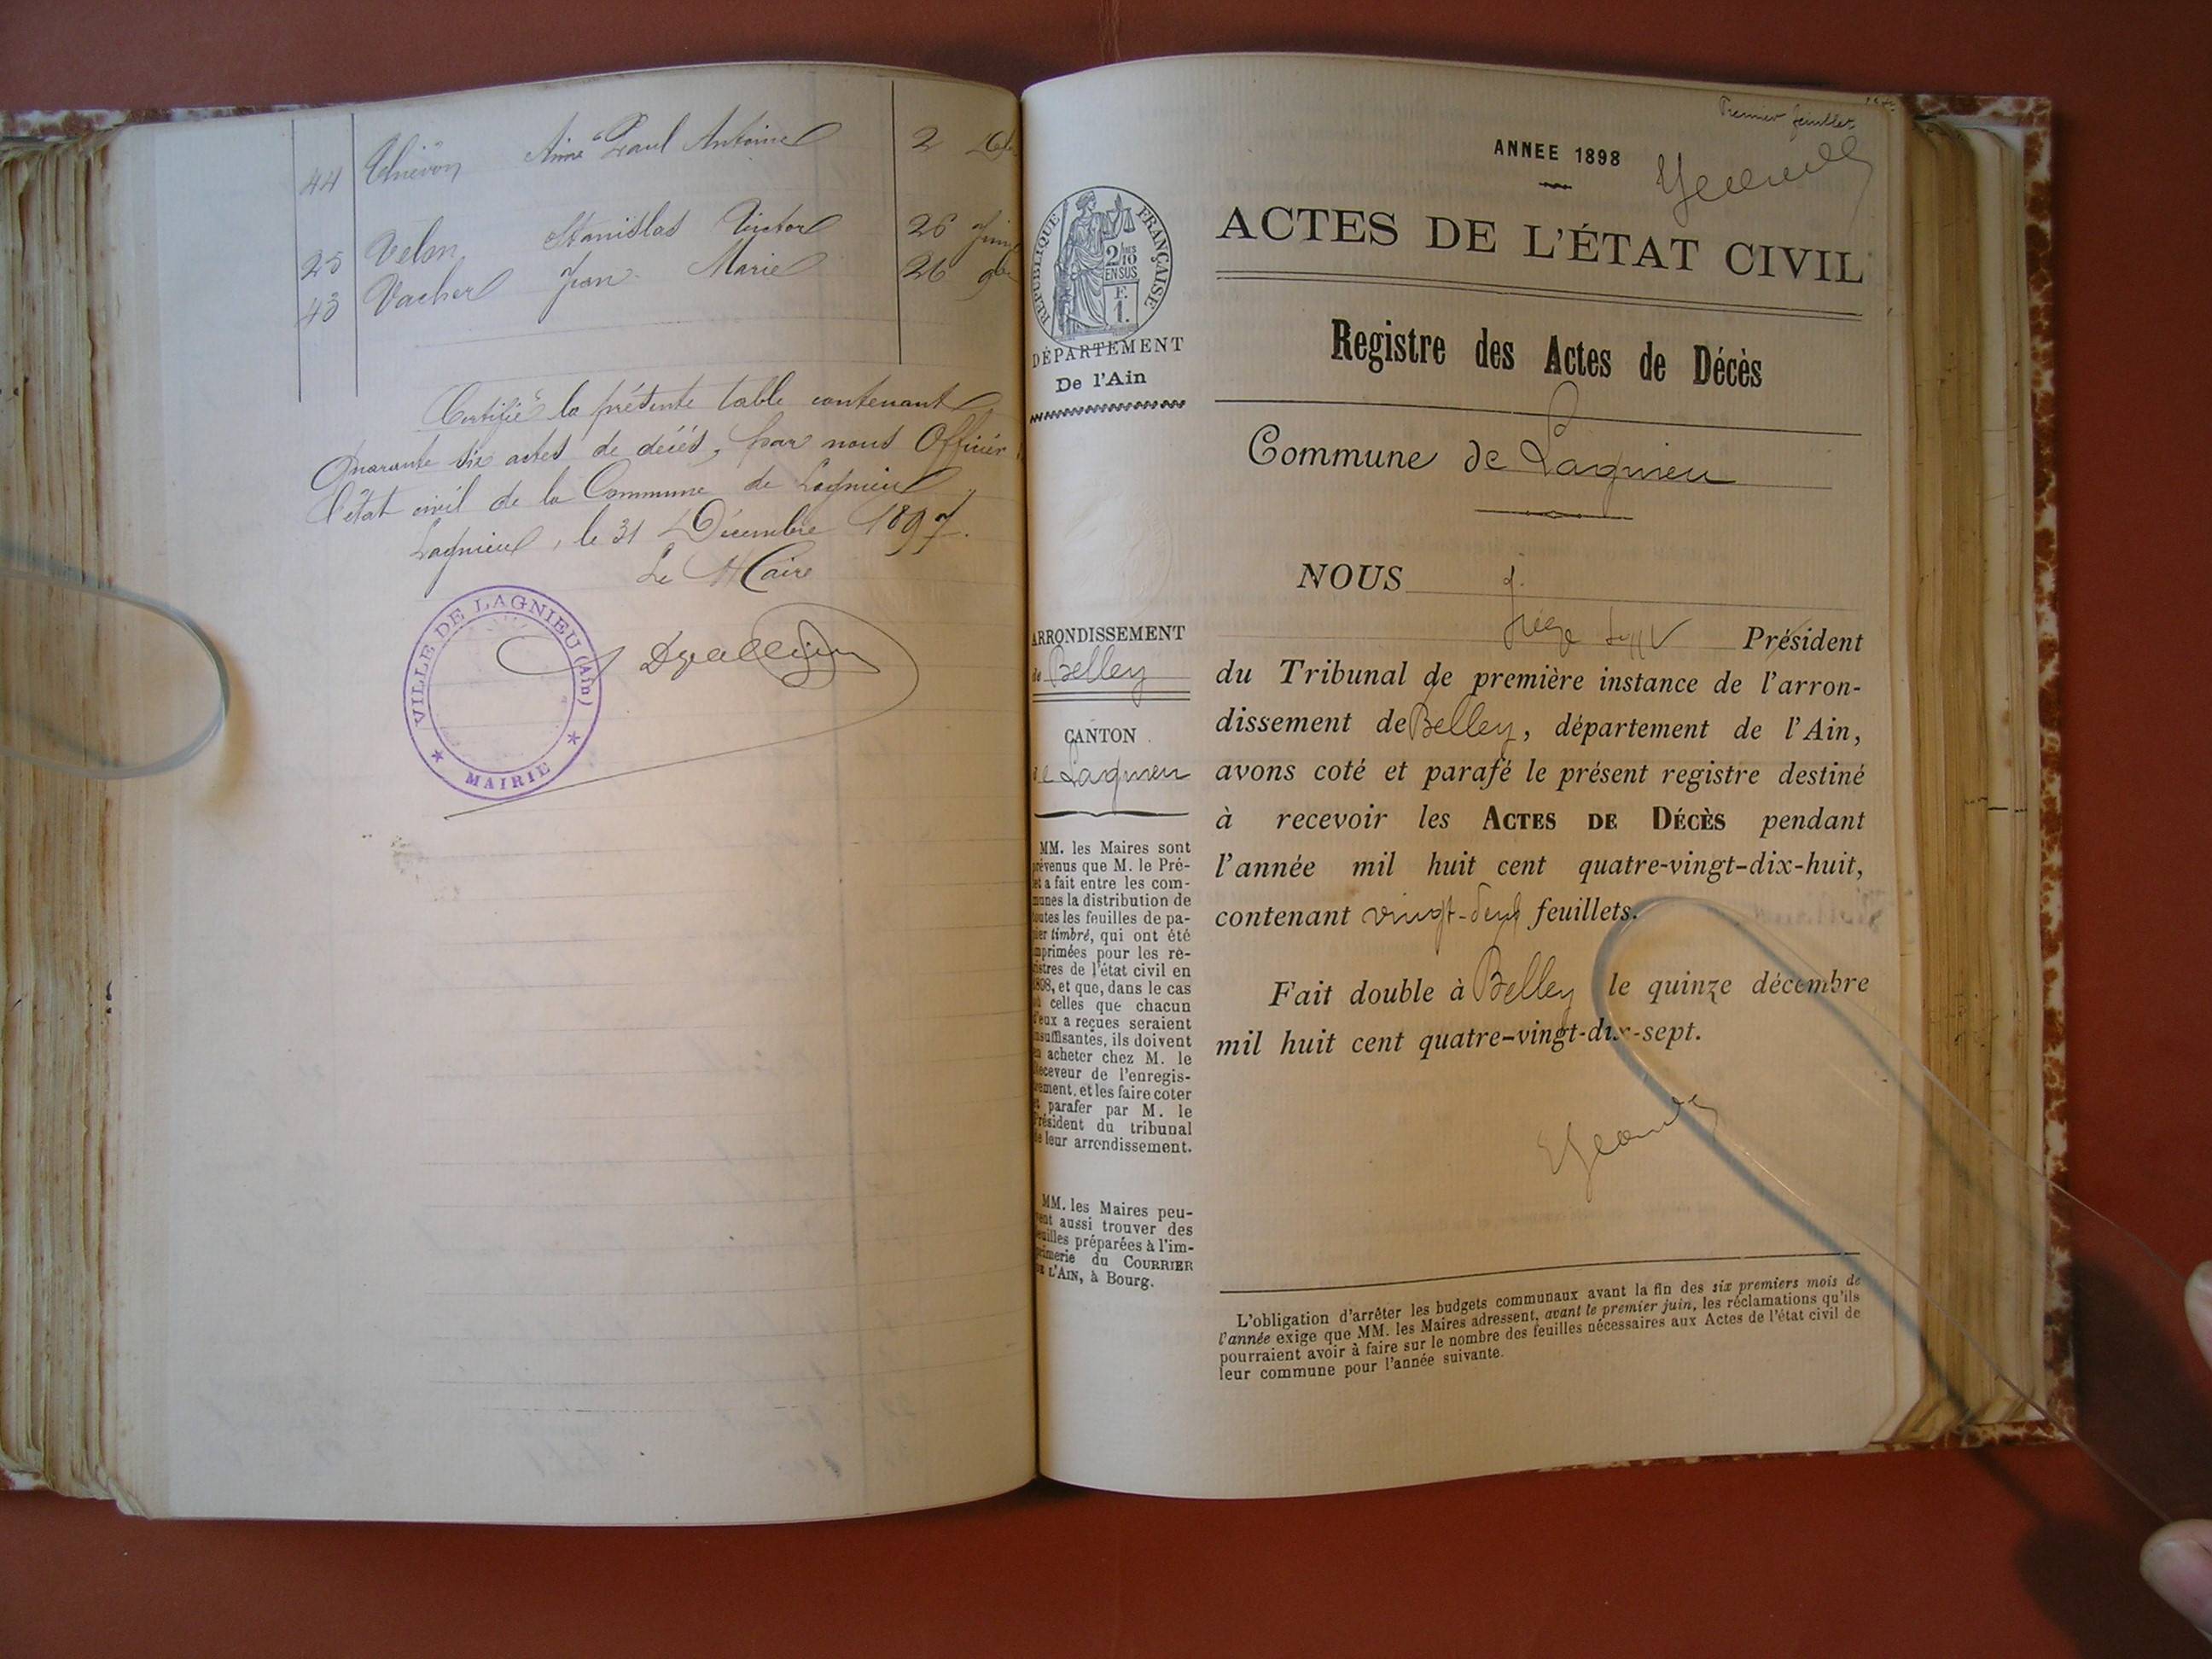 44 Thévon Aimé Paul Antoine 2
25 Velon Stanislas Victor 26
43 Vacher Jean Marie 26
Certifié la présente table contenant
Quarante six actes de décès, par nous Officier
l'état civil de la Commune de Lagnieu
Lagnieu, le 31 Décembre 1897.
Le Maire
VILLE DE LAGNIEU (Ain)
MAIRIE
Premier feuillet
ANNEE 1898
ACTES DE L'ÉTAT CIVIL
Registre des Actes de Décès
Commune de Lagnieu
RÉPUBLIQUE FRANÇAISE
2/10
EN SUS
F.
1.
DÉPARTEMENT
De l'Ain
ARRONDISSEMENT
de Belley
CANTON
de Lagnieu
MM. les Maires sont
prévenus que M. le Pré-
fet a fait entre les com-
munes la distribution de
toutes les feuilles de pa-
pier timbré, qui ont été
imprimées pour les re-
gistres de l'état civil en
1898, et que, dans le cas
où celles que chacun
d'eux a reçues seraient
insuffisantes, ils doivent
en acheter chez M. le
Receveur de l'enregis-
trement, et les faire coter
et parafer par M. le
Président du tribunal
de leur arrondissement.
MM. les Maires peu-
vent aussi trouver des
feuilles préparées à l'im-
primerie du COURRIER
DE L'AIN, à Bourg.
NOUS
Président
du Tribunal de première instance de l'arron-
dissement de Belley, département de l'Ain,
avons coté et parafé le présent registre destiné
à recevoir les ACTES DE DÉCÈS pendant
l'année mil huit cent quatre-vingt-dix-huit,
contenant vingt-deux feuillets.
Fait double à Belley le quinze décembre
mil huit cent quatre-vingt-dix-sept.
L'obligation d'arrêter les budgets communaux avant la fin des six premiers mois de
l'année exige que MM. les Maires adressent, avant le premier juin, les réclamations qu'ils
pourraient avoir à faire sur le nombre des feuilles nécessaires aux Actes de l'état civil de
leur commune pour l'année suivante.